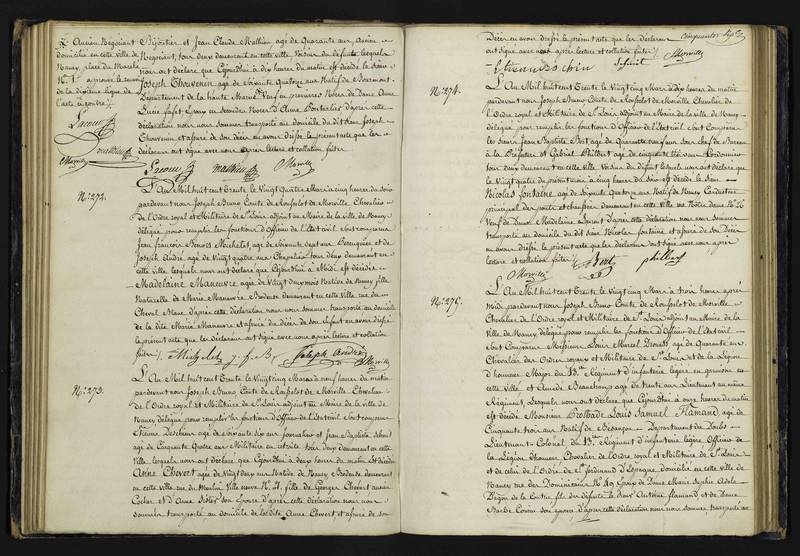 Ancien Negociant
domicilié en cette ville de
Nancy, place du Marché
N.º 1. approuvé le renvoi
de la dixieme ligne de
l'acte ci contre
Bijoutier et Jean Claude Mathieu agé de Quarante ans, Ancien
Negociant, tous deux demeurant en cette ville, Voisins du défunt, lesquels
nous ont déclaré que Cejourdhui à dix heures du matin est décédé le Sieur
Joseph Thouvenin, agé de Soixante Quatorze ans Natif de Bourmont,
Département de la haute Marne, Veuf en premieres Noces de Dame Anne
Lucie Lafet, Epoux en secondes Noces d'Anne Pontarlier d'après cette
déclaration nous nous sommes transporté au domicile du dit Sieur Joseph
Thouvenin et assuré de son décès en avons dressé le présent acte que les
déclarants ont signé avec nous après lecture et collation faite
Lacour mathieu Morville
Lacour mathieu Morville
N.º 272.
L'An Mil huit cent Trente le Vingt Quatre Mars à cinq heures du soir
pardevant nous Joseph Bruno Comte de Rousselot de Morville, Chevalier
de l'Ordre royal et Militaire de St. Louis adjoint au Maire de la ville de Nancy
délégué pour remplir les fonctions d'Officier de l'Etat civil Sont comparus
Jean François Benoit Michelet, agé de Soixante Sept ans Perruquier et
Joseph André, agé de Vingt quatre ans Chapelier tous deux demeurant en
cette ville lesquels nous ont déclaré que Cejourdhui à Midi est décédée
Madelaine Maneuvre, agée de Vingt deux mois Native de Nancy fille
Naturelle de Marie Maneuvre Brodeuse demeurant en cette Ville rue du
Cheval Blanc d'après cette déclaration nous nous sommes transporté au domicile
de la dite Marie Maneuvre et assuré du décès de son Enfant en avons dressé
le présent acte que les déclarants ont signé avec nous après lecture et collation
faite Joseph André Morville
N.º 273.
L'An Mil huit cent Trente le Vingt cinq Mars à neuf heures du matin
pardevant nous Joseph Bruno Comte de Rousselot de Morville Chevalier
de l'Ordre royal et Militaire de St. Louis adjoint au Maire de la ville de
Nancy délégué pour remplir les fonctions d'Officier de l'Etat civil Sont comparus
Etienne Deschien agé de Soixante dix ans Journalier et Jean Baptiste
agé de Cinquante Quatre ans Militaire en retraite tous deux demeurant en cette
Ville lesquels nous ont déclaré que Cejourdhui à deux heures du matin est décédée
Anne Chevert agée de Vingt deux ans Native de Nancy Brodeuse demeurant
en cette ville rue du Moulin Ville neuve N.º 21, fille de Georges Chevert ancien
Cocher et d'Anne son Epouse d'après cette déclaration nous nous
sommes transporté au domicile de la dite Anne Chevert et assuré de son
Cinquante Sept
Décès en avons dressé le présent acte que les déclarants
ont signé avec nous après lecture et collation faite
Morville
N.º 274.
L'An Mil huit cent Trente le Vingt cinq Mars à dix heures du matin
pardevant nous Joseph Bruno Comte de Rousselot de Morville Chevalier de
l'Ordre royal et Militaire de St. Louis adjoint au Maire de la ville de Nancy
délégué pour remplir les fonctions d'Officier de l'Etat civil Sont Comparus
les Sieurs Jean Baptiste Bort agé de Quarante ans Chef de Bureau
à la Préfecture et Gabriel Philbert agé de cinquante trois ans Cordonnier
tous deux demeurant en cette ville Voisins du défunt lesquels nous ont déclaré que
le Vingt quatre du présent mois à cinq heures du soir est décédé le Sieur
Nicolas Fontaine agé de Soixante Quatorze ans Natif de Nancy Conducteur
principal des ponts et chaussées demeurant en cette ville rue Notre Dame N.º 26
Veuf de Dame Madelaine Laurent d'après cette déclaration nous nous sommes
transporté au domicile du dit Sieur Nicolas Fontaine et assuré de son Décès
en avons dressé le présent acte que les déclarants ont signé avec nous après
lecture et collation faite
Morville Bort philbert
N.º 275.
L'An Mil huit cent Trente le Vingt cinq Mars à trois heures après
midi pardevant nous Joseph Bruno Comte de Rousselot de Morville
Chevalier de l'Ordre royal et Militaire de St. Louis adjoint au Maire de la
Ville de Nancy, délégué pour remplir les fonctions d'Officier de l'Etat civil
Sont Comparus Messieurs Louis Marcel agé de Quarante ans
Chevalier des Ordres royaux et Militaires de St. Louis et de la Légion
d'honneur Major du 15.me Régiment d'infanterie légère en garnison en
cette Ville et Amédé Beauchamps agé de trente ans Lieutenant au même
Régiment, lesquels nous ont déclaré que Cejourdhui à onze heures du matin
est décédé Monsieur Prothade Louis Samuel Flamand, agé de
Cinquante trois ans Natif de Besançon Département du Doubs
Lieutenant-Colonel du 15.me Régiment d'infanterie légère, Officier de
la Légion d'honneur Chevalier de l'Ordre royal et Militaire de St. Louis
et de celui de l'Ordre de St. ferdinand d'Espagne domicilié en cette ville de
Nancy rue des Dominicains N.º 49 Epoux de Dame Marie Sophie Adele
fils des défunts le Sieur Antoine flamand et de Dame
Barbe son épouse d'après cette déclaration nous nous sommes transporté au